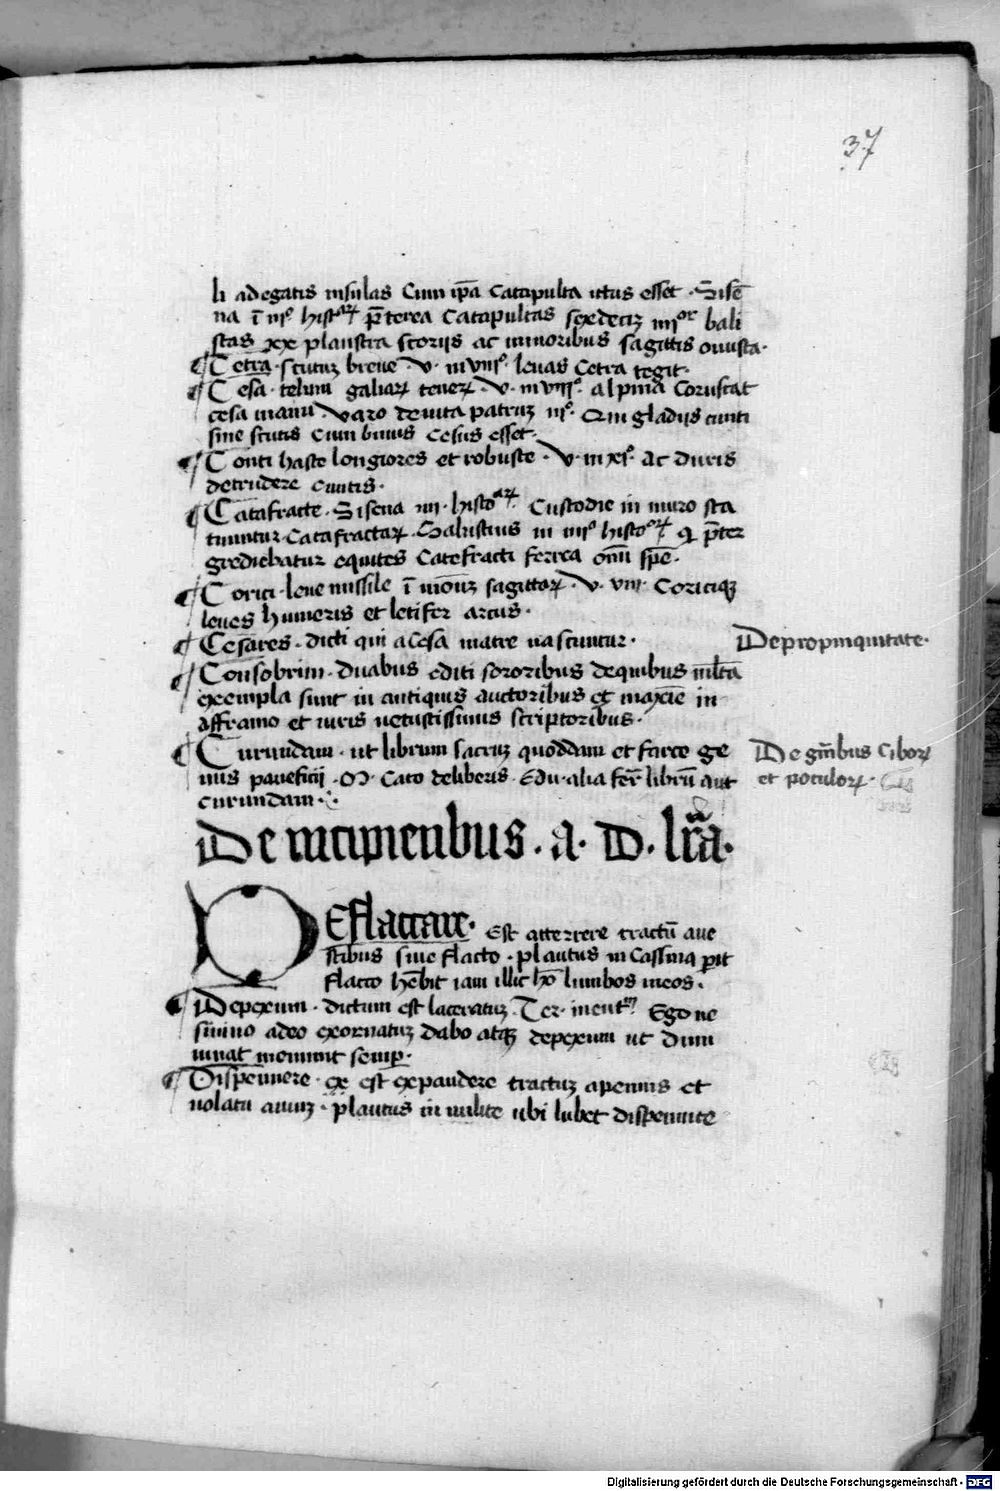 37
li adegatis insulas Cum ip̄a Catapulta ictus esset · Sisē
na ī iiiº histoꝝ p̄terea Catapultas sexdeciꝫ iiiior bali
stas xx planstra scoriis ac minoribus sagittis onusta·
¶ Cetra · scutuꝫ breue · v · in viiiº leuas Cetra tegit·
¶ Cesa · telum galiaꝝ teneꝝ · v · in viiiº Alpina Coruscat
cesa manu varo de uita patruꝫ iiiº · Qui gladiis cuncti
sine scutis Cum binus Cesus esset·
¶ Conti haste longiores et robuste · v · in xiº Ac duris
detrudere contis·
¶ Catafracte · Sisena iii · histoꝝ Custodie in muro sta
tuuntur · Catafractaꝝ · Salustius in iiiiº histoꝝ qi p̄ter
grediebatur equites Catefracti ferrea omī spē·
¶ Corici · leue missile ī moꝫ sagittaꝝ · v · viii · Coriciqꝫ
leues humeris et letifer arcus·
¶ Cesares · dicti qui a Cesa matre nascuntur·
Depropinquitate·
¶ Consobrini · duabus editi sororibus de quibus ml̄ta
exempla sunt in antiquis auctoribus et maxīe in
afframo et iuris uetustissimis scriptoribus·
¶ Curundam · ut librum sacruꝫ quoddam et farre ge
nus paneficij · M · Cato deliberis · Edu · alia fer̄ librū aut
curundam·
De gn̄ibus Ciboꝝ
et potuloꝝ·
De incipientibus · a · D · lr̄a·
DEflaccare · Est atterrere tractū aue
stibus siue flacco · plautus in Cassina ꝑit
flacco hēbit iam illic hō lumbos meos·
¶ Depexum · dictum est laceratuꝫ · Ter · in eutᵐ Ego ne
si uiuo adeo exornatuꝫ dabo atqꝫ depexum ut dum
uiuat meminit semꝑ·
¶ Dispennere · ex est expandere tractuꝫ apennis et
uolatu auiuꝫ · plautus in milite ubi lubet dispennite
Digitalisierung gefördert durch die Deutsche Forschungsgemeinschaft - DFG